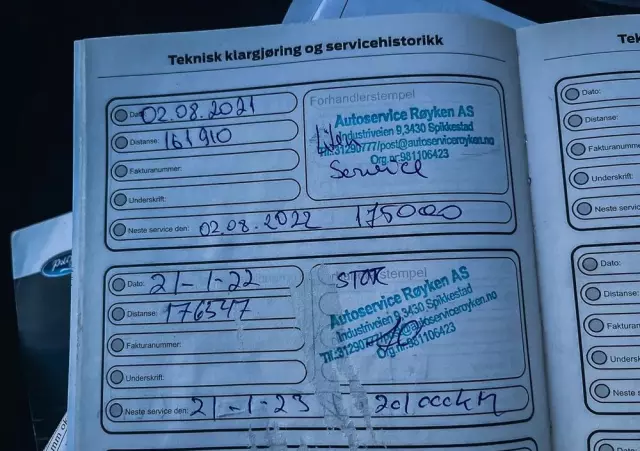 Teknisk klargjøring og servicehistorikk
Dato: 02.08.2021
Distanse: 161910
Fakturanummer:
Underskrift:
Neste service den: 02.08.2022 175000
Forhandlerstempel
Autoservice Røyken AS
Industriveien 9,3430 Spikkestad
Tlf.:31290777/post@autoserviceroyken.no
Org.nr.981106423
Liten
Service
Dato: 21-1-22
Distanse: 176547
Fakturanummer:
Underskrift:
Neste service den: 21-1-23
STOR
stempel
Autoservice Røyken AS
Industriveien 9,3430 Spikkestad
@autoserviceroyken.no
Org.nr.981106423
Tek
Dato:
Distanse:
Fakturanumme
Underskrift:
Neste service
Dato:
Distanse:
Fakturan
Undersk
Neste se
Dato: